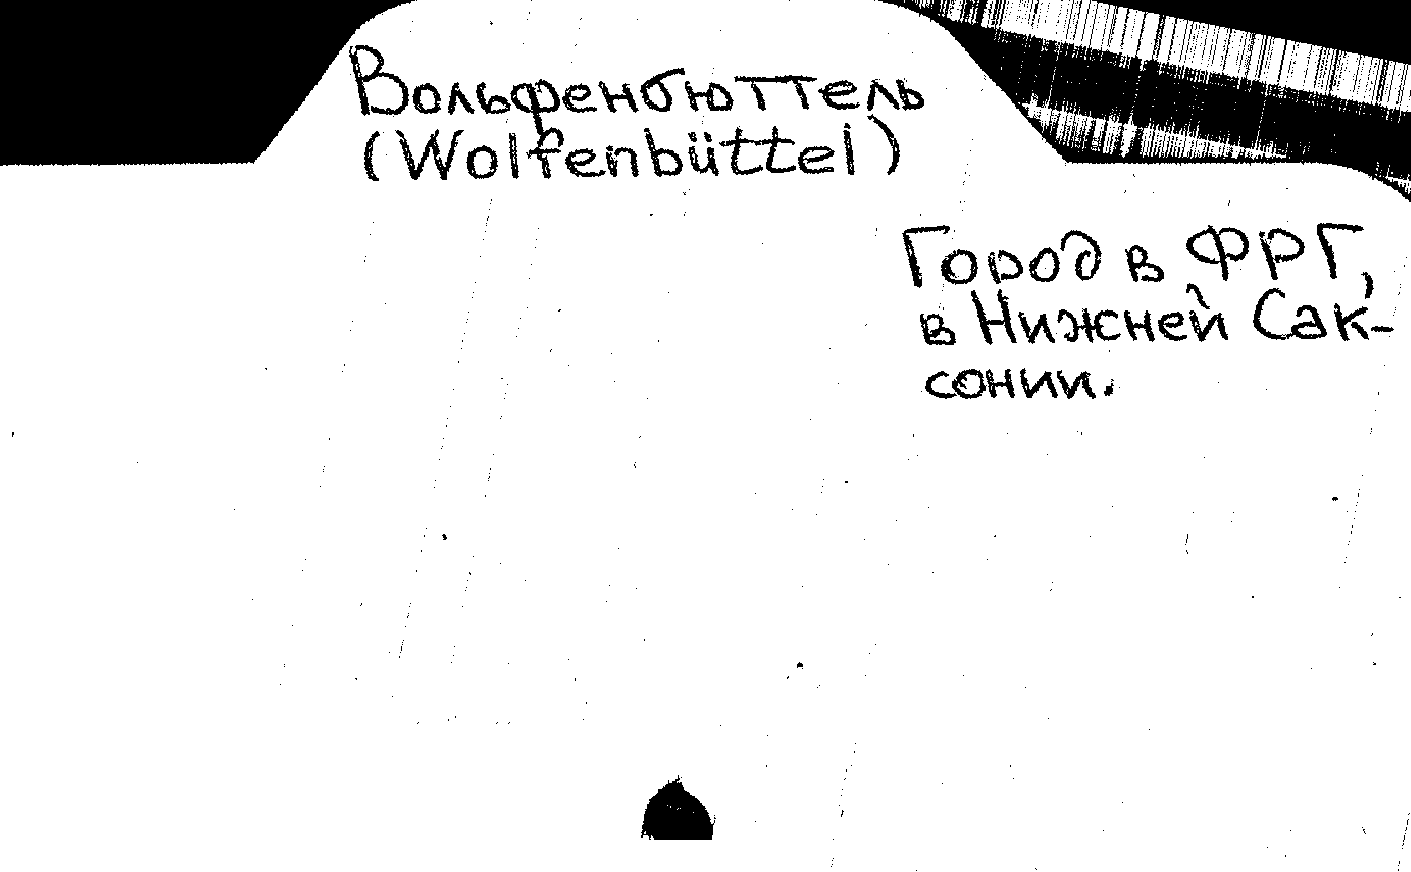 Вольфенбюттель
(Wolfenbüttel)
Город в ФРГ,
в Нижней Сак-
сонии.